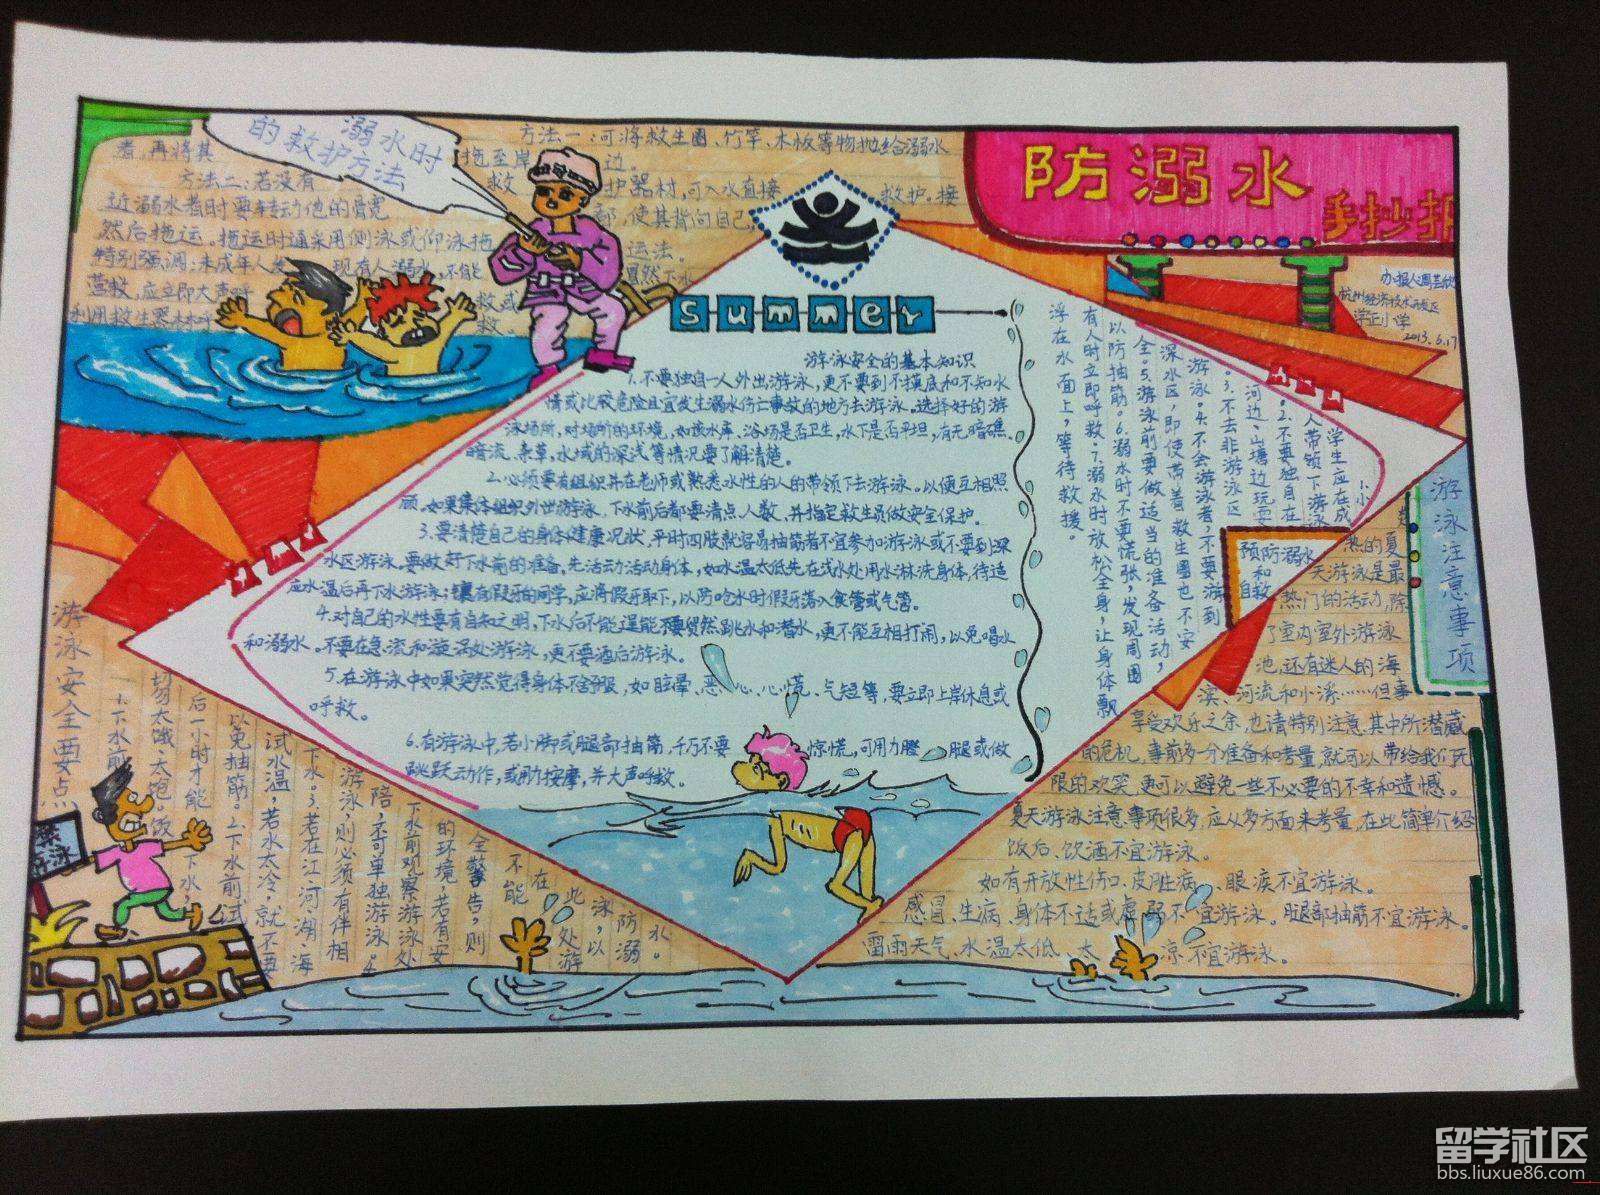 溺水时
的救护方法
方法一：可将救生圈、竹竿、木板等物抛给溺水
者，再将其
拖至岸
边。
方法二：若没有
救
护器材，可入水直接
救护。接
近溺水者时要转动他的髋
部，使其背向自己，
然后拖运。拖运时通采用侧泳或仰泳拖
运法。
特别强调：未成年人发
现有人溺水，不能
冒然下水
营救，应立即大声呼
救或
利用救生器材呼
救
防溺水
手抄报
办报人周芸欣
杭州经济技术开发区
学正小学
2013.6.17
summer
游泳安全的基本知识
1.不要独自一人外出游泳，更不要到不摸底和不知水
情或比较危险且宜发生溺水伤亡事故的地方去游泳。选择好的游
泳场所，对场所的环境，如该水库、浴场是否卫生，水下是否平坦，有无暗礁、
暗流、杂草，水域的深浅等情况要了解清楚。
2.必须要有组织并在老师或熟悉水性的人的带领下去游泳。以便互相照
顾。如果集体组织外出游泳，下水前后都要清点人数，并指定救生员做安全保护。
3.要清楚自己的身体健康况状，平时四肢就容易抽筋者不宜参加游泳或不要到深
水区游泳。要做好下水前的准备，先活动活动身体，如水温太低先在浅水处用水淋洗身体，待适
应水温后再下水游泳；镶有假牙的同学，应将假牙取下，以防呛水时假牙落入食管或气管。
4.对自己的水性要有自知之明，下水后不能逞能，不要贸然跳水和潜水，更不能互相打闹，以免喝水
和溺水。不要在急流和漩涡处游泳，更不要酒后游泳。
5.在游泳中如果突然觉得身体不舒服，如眩晕、恶心、心慌、气短等，要立即上岸休息或
呼救。
6.有游泳中，若小脚或腿部抽筋，千万不要惊慌，可用力蹬腿或做
跳跃动作，或用力按摩，并大声呼救。
预防溺水
和
自救
1.小
学生应在成
人带领下游泳
。2.不要独自在
河边、山塘边玩耍
。3.不去非游泳区
游泳。4.不会游泳者，不要游到
深水区，即使带着救生圈也不安
全。5.游泳前要做适当的准备活动，
以防抽筋。6.溺水时不要慌张，发现周围
有人时立即呼救。7.溺水时放松全身，让身体飘
浮在水面上，等待救援。
游泳注意事项
热的夏
天游泳是最
热门的活动，除
了室内室外游泳
池，还有迷人的海
滨、河流和小溪……但事
享受欢乐之余，也请特别注意，其中所潜藏
的危机，事前多一分准备和考量，就可以带给我们无
限的欢笑，更可以避免一些不必要的不幸和遗憾。
夏天游泳注意事项很多，应从多方面来考量，在此简单介绍
饭后、饮酒不宜游泳。
如有开放性伤口、皮肤病、眼疾不宜游泳。
感冒、生病、身体不适或虚弱不宜游泳。腿部抽筋不宜游泳。
雷雨天气、水温太低、太凉不宜游泳。
游泳安全要点
禁
游泳
1.下水前
切太饿、太饱。饭
后一小时才能下水，
以免抽筋。2.下水前试
试水温，若水太冷，就不要
下水。3.若在江、河、湖、海
游泳，则必须有伴相
陪，不可单独游泳。4.
下水前观察游泳处
的环境，若有安
全警告，则
不能
在此处游
泳，以
防溺
水。
留学社区
bbs.liuxue86.com